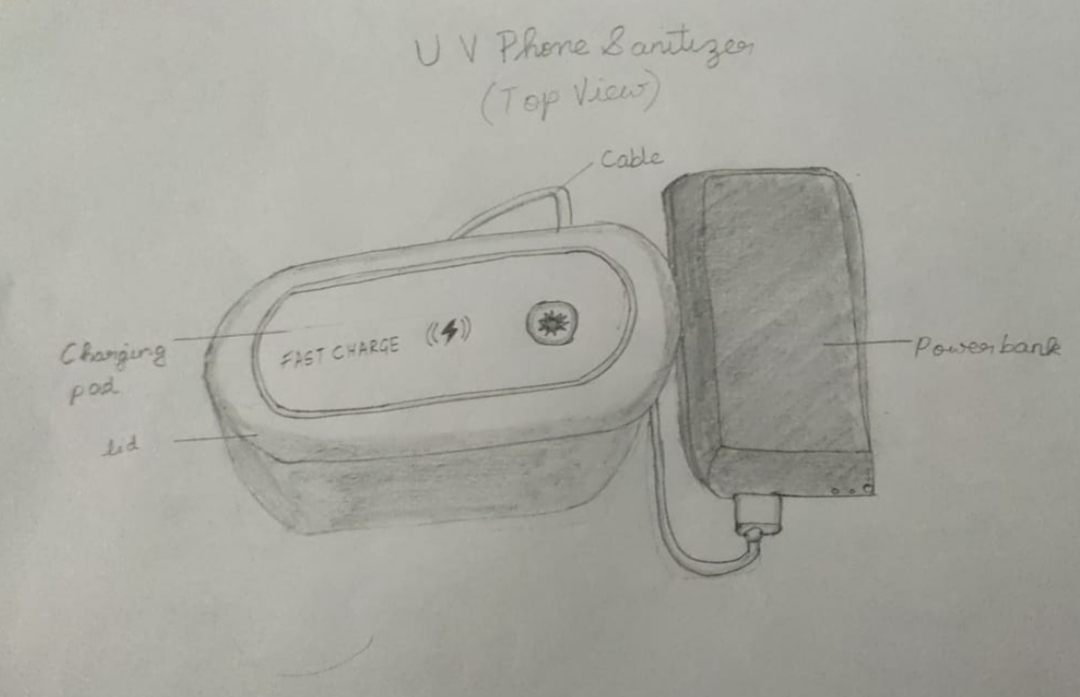 UV Phone Sanitizer
(Top View)
Cable
Charging
pad
FAST CHARGE
Powerbank
lid